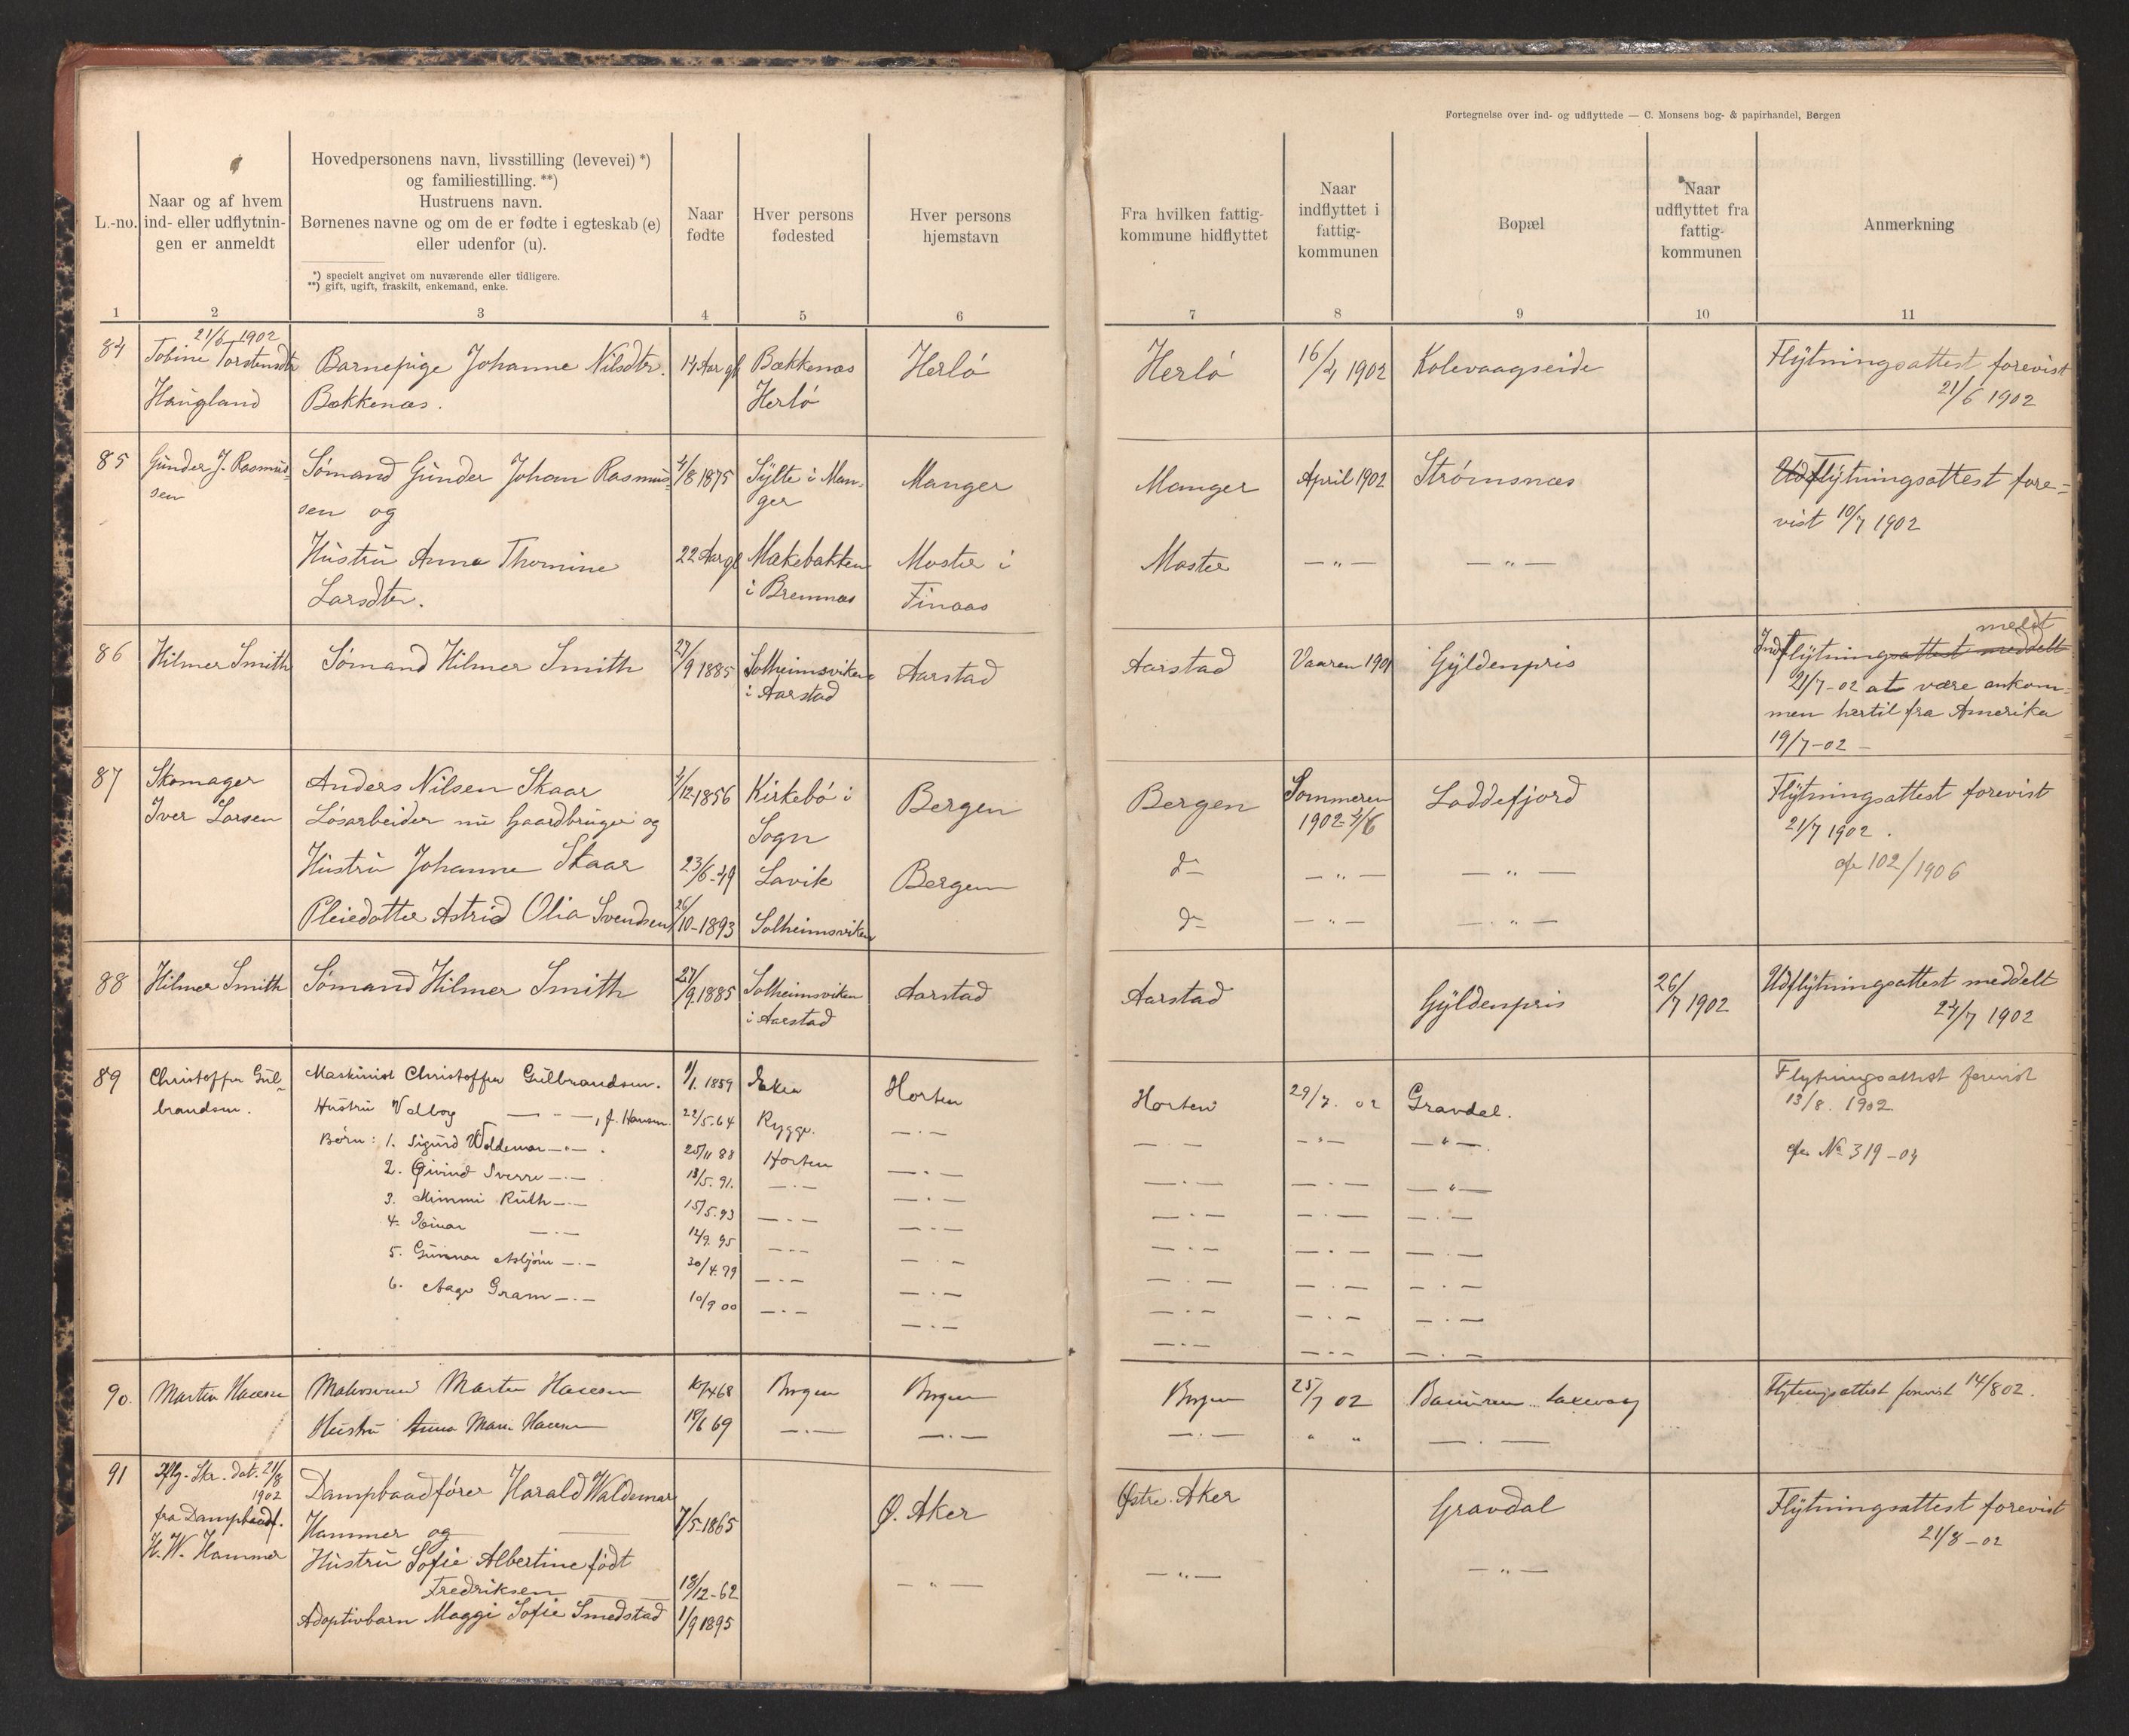 Fortegnelse over ind- og udflyttede — C. Monsens bog- & papirhandel, Bergen
L.-no.
Naar og af hvem
ind- eller udflytnin-
gen er anmeldt
Hovedpersonens navn, livsstilling (levevei) *)
og familiestilling. **)
Hustruens navn.
Børnenes navne og om de er fødte i egteskab (e)
eller udenfor (u).
*) specielt angivet om nuværende eller tidligere.
**) gift, ugift, fraskilt, enkemand, enke.
Naar
fødte
Hver persons
fødested
Hver persons
hjemstavn
Fra hvilken fattig-
kommune hidflyttet
Naar
indflyttet i
fattig-
kommunen
Bopæl
Naar
udflyttet fra
fattig-
kommunen
Anmerkning
1 2 3 4 5 6 7 8 9 10 11
84
21/6 1902
Tobine Torstensdtr
Haugland
Barnepige Johanne Nilsdtr.
Bækkenæs.
14 Aar gl
Bækkenæs
Herlö
Herlö
Herlö
16/4 1902
Kolevaagseide
Flytningsattest forevist
21/6 1902
85
Gunder J. Rasmus-
sen
Sømand Gunder Johan Rasmus-
sen og
4/8 1875
Sylte i Man-
ger
Manger
Manger
April 1902
Strömsnæs
Udflytningsattest fore-
vist 10/7 1902
Hustru Anna Thomine
Larsdtr.
22 Aar gl
Mækebakken
i Bremnæs
Moster i
Finaas
Moster
— „ —
— „ —
86
Hilmer Smith
Sömand Hilmer Smith
27/9 1885
Solheimsviken
i Aarstad
Aarstad
Aarstad
Vaaren 1901
Gyldenpris
meldt
Indflytningsattest meddelt
21/7-02 at være ankom-
men hertil fra Amerika
19/7-02 —
87
Skomager
Iver Larsen
Anders Nilsen Skaar
Lösarbeider nu Gaardbruger og
Hustru Johanne Skaar
Pleiedatter Astrid Olia Svendsen
4/12-1856
23/6-49
26/10-1893
Kirkebö i
Sogn
Lavik
Solheimsviken
Bergen
Bergen
Bergen
do
do
Sommeren
1902 4/6
— „ —
— „ —
Loddefjord
— „ —
— „ —
Flytningsattest forevist
21/7 1902.
cfr 102/1906
88
Hilmer Smith
Sömand Hilmer Smith
27/9 1885
Solheimsviken
i Aarstad
Aarstad
Aarstad
Gyldenpris
26/7 1902
Udflytningsattest meddelt
24/7 1902
89
Christoffer Gul-
brandsen.
Maskinist Christoffer Gulbrandsen.
Hustru Valborg — „ —, f. Hansen.
Börn: 1. Sigurd Waldemar — „ — .
2. Øivind Sverre — . —
3. Mimmi Ruth — . —
4. Einar — . —
5. Gunnar Asbjörn — . —
6. Aage Gram — . —
1/1. 1859
22/5-64
25/11 88
13/5. 91.
15/5. 93
12/9. 95
30/4. 99
10/9 00
Rygge.
Horten
— . —
— . —
— . —
— . —
— . —
Horten
— . —
— . —
— . —
— . —
— . —
— . —
— . —
Horten
— —
— . —
— . —
— . —
— . —
— . —
— . —
29/7. 02
— „ —
— . —
— . —
— . —
— . —
— . —
— . —
Gravdal.
— „ —
— „ —
— . —
— . —
— . —
— . —
— . —
Flytningsattest forevist
13/8. 1902
cfr No 319-04
90.
Martin Hansen
Martin Hansen
Hustru Anna Marie Hansen
69
Bergen
— . —
Bergen
— . —
Bergen
— . —
25/7 02
„ „
Laxevaag
— . —
Flytningsattest forevist 14/8 02.
91
Iflg. Skr. dat. 21/8
1902
fra Dampbaadf.
H. W. Hammer
Dampbaadförer Harald Waldemar
Hammer og
Hustru Sofie Albertine födt
Fredriksen
Adoptivbarn Maggi Sofie Smedstad
7/5-1865
18/12-62
1/9 1895
Ø. Aker
— „ —
Østre Aker
— „ —
Gravdal
— „ —
Flytningsattest forevist
21/8-02